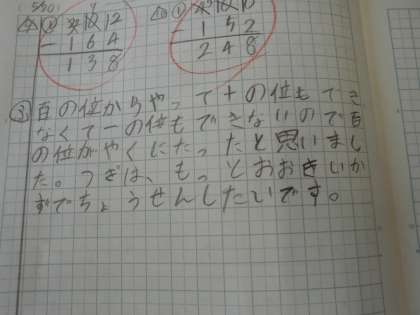 - 1 6 4
1 3 8
- 1 5 2
2 4 8
③百の位からやって十の位もでき
なくて一の位もできないので百
の位がやくにたったと思いまし
た。つぎは、もっとおおきいか
ずでちょうせんしたいです。